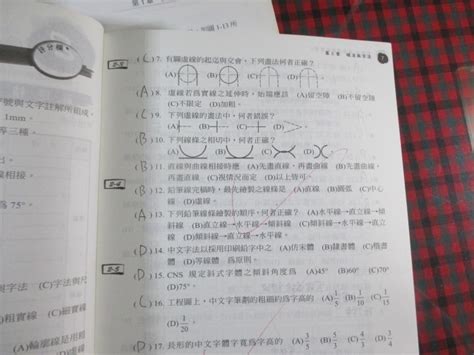 第1章
如圖1-13所
評分欄
第 2 章 線法與字法 7
2-3
(C) 7. 有關虛線的起迄與交會，下列畫法何者正確？
(A) (B) (C) (D)
(A) 8. 虛線若為實線之延伸時，始端應該 (A)留空隙 (B)不留空隙
(C)不限定 (D)加粗。
(C) 9. 下列虛線的畫法中，何者錯誤？
(A) (B) (C) (D)
(B) 10. 下列線條之相切中，何者正確？
(A) (B) (C) (D)
(B) 11. 直線與曲線相接時應 (A)先畫直線，再畫曲線 (B)先畫曲線，
再畫直線 (C)視情況而定 (D)以上皆可。
2-4
(B) 12. 鉛筆線完稿時，最先繪製之線條是 (A)直線 (B)圓弧 (C)中心
線 (D)虛線。
(A) 13. 下列鉛筆線條繪製的順序，何者正確？ (A)水平線→直立線→
傾斜線 (B)直立線→水平線→傾斜線 (C)水平線→傾斜線→直立
線 (D)傾斜線→直立線→水平線。
(D) 14. 中文字法以採用印刷鉛字中之 (A)仿宋體 (B)隸書體 (C)楷書
體 (D)等線體 為原則。
2-5
(D) 15. CNS 規定斜式字體之傾斜角度為 (A)45° (B)60° (C)70°
(D)75°。
(C) 16. 工程圖上，中文字筆劃的粗細約為字高的 (A)1/5 (B)1/10 (C)1/15
(D)1/20。
(D) 17. 長形的中文字體字寬為字高的 (A)4/3 (B)3/5 (C)2/3 (D)3/4
號與文字註解所組成，
1mm。
等三種。
為75°。
法 (C)字法與尺
粗實線 (C)細實線
(A)輪廓線是用粗